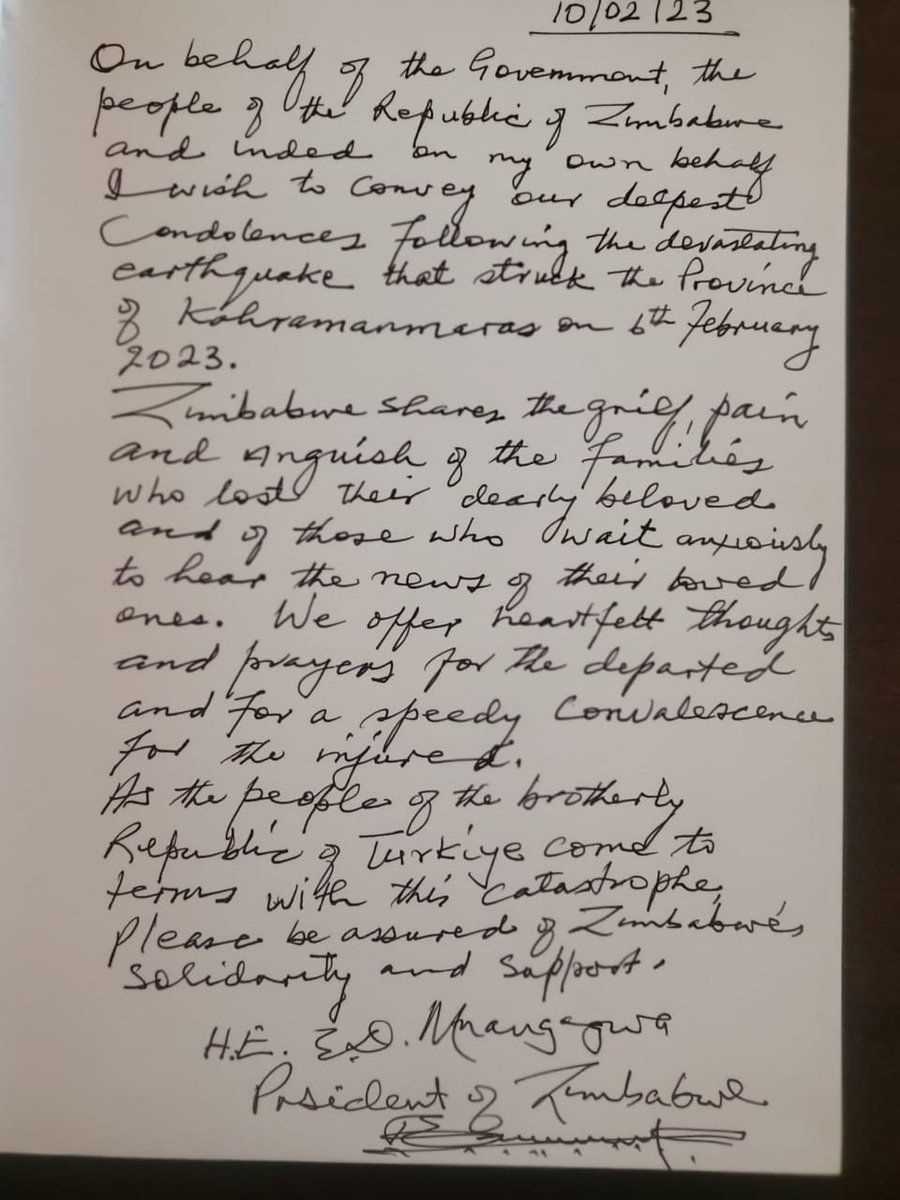 10/02/23
On behalf of the Government, the
people of the Republic of Zimbabwe
and inded on my own behalf
I wish to convey our deepest
Condolences following the devastating
earthquake that struck the Province
of Kahramanmaras on 6th February
2023.
Zimbabwe shares the grief, pain
and anguish of the families
who lost their dearly beloved
and of those who wait anxiously
to hear the news of their loved
ones. We offer heartfelt thoughts
and prayers for the departed
and for a speedy Convalescence
for the injured.
As the people of the brotherly
Republic of Türkiye come to
terms with this catastrophe,
Please be assured of Zimbabwe's
Solidarity and Support.
H.E. E.D. Mnangagwa
President of Zimbabwe